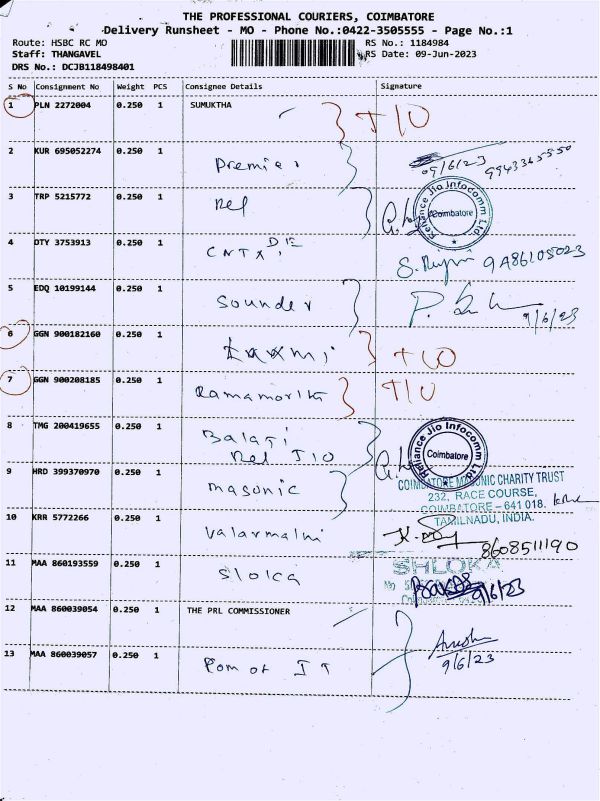 THE PROFESSIONAL COURIERS, COIMBATORE
Delivery Runsheet - MO - Phone No.:0422-3505555 - Page No.:1
Route: HSBC RC MO RS No.: 1184984
Staff: THANGAVEL RS Date: 09-Jun-2023
DRS No.: DCJB118498401
S No Consignment No Weight PCS Consignee Details Signature
1 PLN 2272004 0.250 1 SUMUKTHA
2 KUR 695052274 0.250 1 Premier 09/6/23 9943365550
3 TRP 5215772 0.250 1 Rel
Reliance Jio Infocomm Ltd
Coimbatore
4 DTY 3753913 0.250 1
5 EDQ 10199144 0.250 1 Sounder 9/6/23
6 GGN 900182160 0.250 1 Laxmi
7 GGN 900208185 0.250 1
8 TMG 200419655 0.250 1 Balaji
Rel JIO
Reliance Jio Infocomm Ltd
Coimbatore
9 HRD 399370970 0.250 1 masonic
COIMBATORE MASONIC CHARITY TRUST
232, RACE COURSE,
COIMBATORE - 641 018.
TAMILNADU, INDIA.
10 KRR 5772266 0.250 1 Valarmathi 8608511190
11 MAA 860193559 0.250 1 Sloka
SHLOKA
9/6/23
12 MAA 860039054 0.250 1 THE PRL COMMISSIONER
13 MAA 860039057 0.250 1 Com of IT
9/6/23